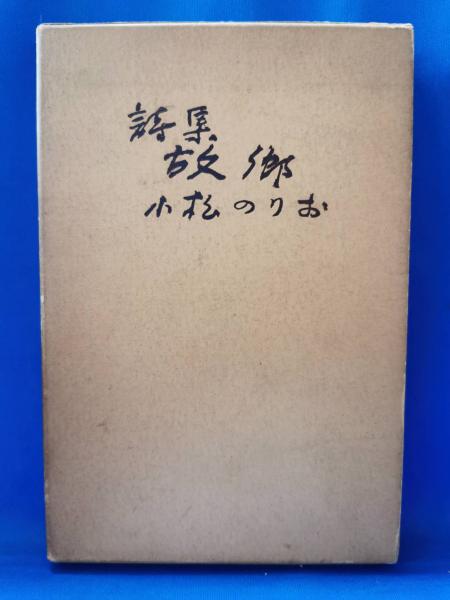 詩集
故郷
小松のりお